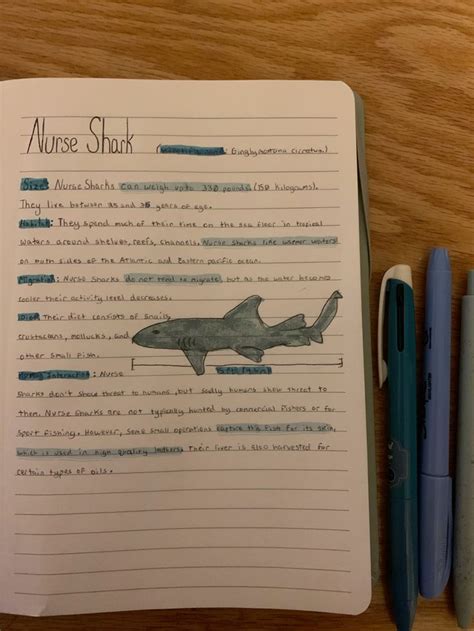 Nurse Shark
Ginglymostoma cirratum)
Size: Nurse Sharks can weigh up to 330 pounds (150 kilograms).
They live between and years of age.
Habitat: They spend much of their time on the sea floor in tropical
waters around shelves, reefs, channels. Nurse sharks like warmer waters
on both sides of the Atlantic and Eastern pacific ocean.
Migration: Nurse Sharks do not tend to migrate but as the water becomes
cooler their activity level decreases.
Diet: Their diet consists of Snails,
crustaceans, mollucks, and
other small fish.
Interaction: Nurse
Sharks don't show threat to humans, but sadly humans show threat to
them. Nurse Sharks are not typically hunted by commercial fishers or for
sport fishing. However, some small operations capture this fish for its skin,
which is used in high quality leathers. Their liver is also harvested for
certain types of oils.